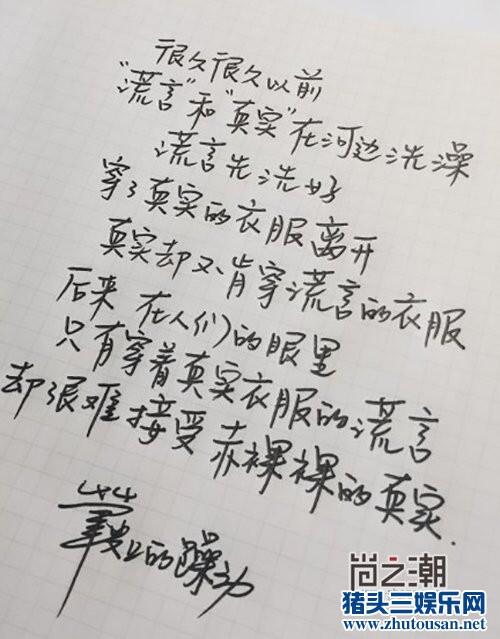 很久很久以前
“谎言”和“真实”在河边洗澡
谎言先洗好
穿了真实的衣服离开
真实却不肯穿谎言的衣服
后来 在人们的眼里
只有穿着真实衣服的谎言
却很难接受赤裸裸的真实.
的躁动
尚之潮
猪头三娱乐网
www.zhutousan.net